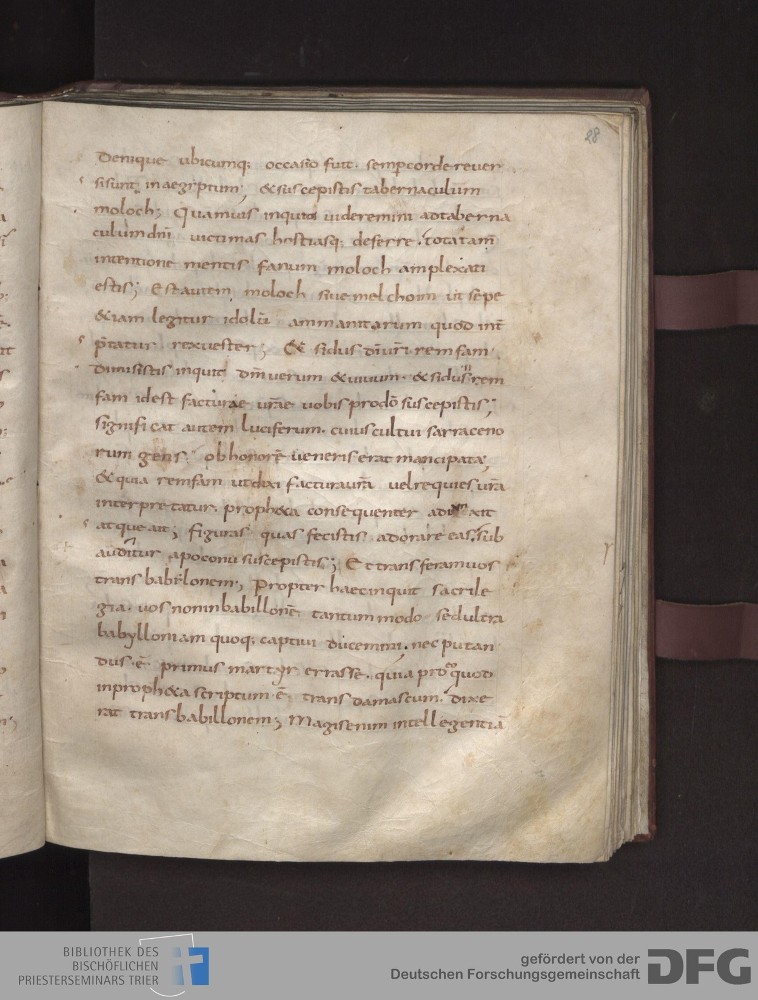 28
Denique ubicumq; occasio fuit. semp corde rever
si sunt in aegyptum; & suscepistis tabernaculum
moloch; Quamvis inquid videremini ad taberna
culum dn̄i victimas hostiasq; deferre. tota tam̄
intentione mentis fanum moloch amplexati
estis; Est autem moloch sive melchom ut sepe
& iam legitur idolū ammanitarum quod int̄
p̄tatur rex vester; Et sidus dī vr̄i remfam.
Dimisistis inquit dm̄ verum & vivum. & sidus remˊ
fam id est facturae vr̄ae vobis pro dō suscepistis;
significat autem luciferum. cuius cultui sarraceno
rum gens ob honorē veneris erat mancipata;
& quia remfam ut dixi factura vr̄a vel requies vr̄a
interpretatur. propheta consequenter
atque ait; figuras quas fecistis adorare eas. sub
auditur apo conu suscepistis; Et transferam vos
trans babilonem; Propter haec inquit sacrile
gia. vos non in babillonē tantummodo sed ultra
babylloniam quoq; captivi ducemini. nec putan
dus .ē. primus martyr errasse. quia pro quod
in propheta scriptum .ē. trans damascum. dixe
rat trans babillonem; Magis enim intellegentiā
BIBLIOTHEK DES
BISCHÖFLICHEN
PRIESTERSEMINARS TRIER
gefördert von der
Deutschen Forschungsgemeinschaft
DFG